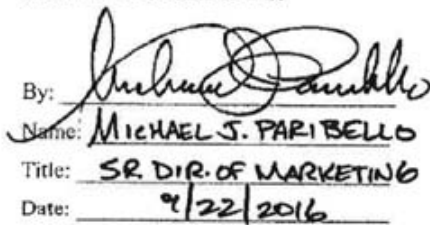 By:
Name: MICHAEL J. PARIBELLO
Title: SR. DIR. OF MARKETING
Date: 9/22/2016